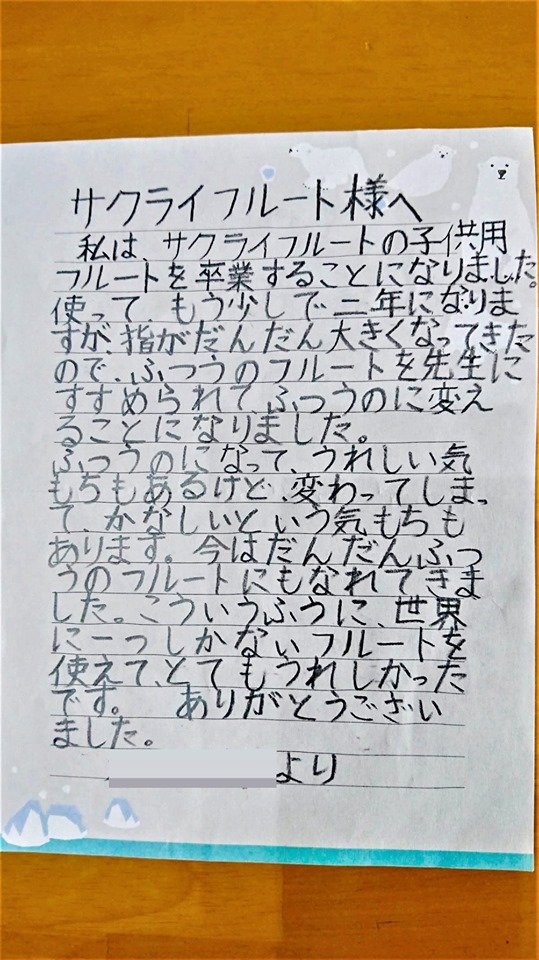 サクライフルート様へ
私は、サクライフルートの子供用
フルートを卒業することになりました。
使って、もう少しで二年になりま
すが、指がだんだん大きくなってきた
ので、ふつうのフルートを先生に
すすめられてふつうのに変え
ることになりました。
ふつうのになって、うれしい気
もちもあるけど、変わってしまっ
て、かなしいという気もちも
あります。今はだんだんふつ
うのフルートにもなれてきま
した。こういうふうに、世界
に一つしかないフルートを
使えて、とてもうれしかった
です。 ありがとうござい
ました。
より